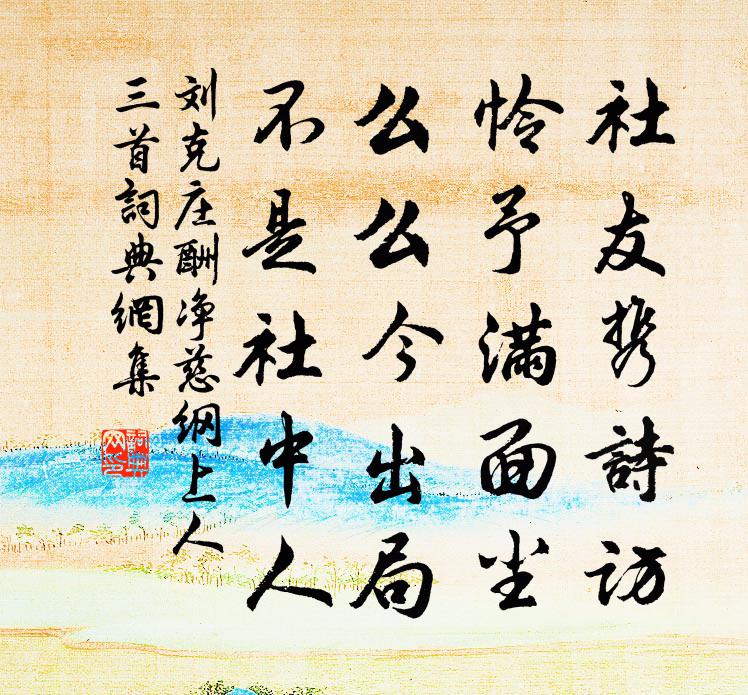 社友携詩訪
怜予滿面尘
么么今出局
不是社中人
刘克庄酬净慈綱上人
三首詞典網集
詞典
网印